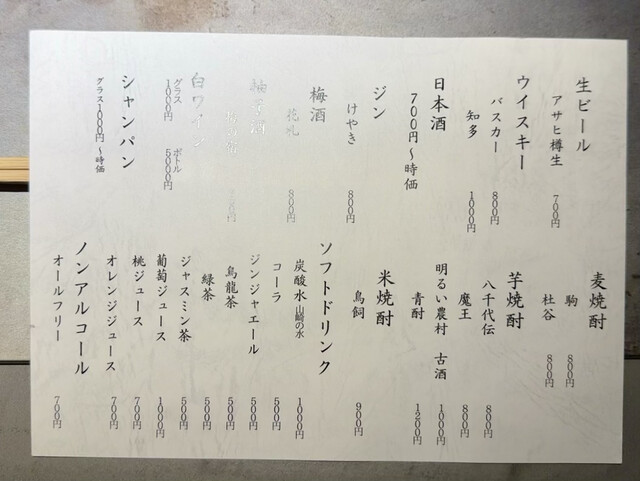 生ビール
アサヒ樽生 700円
ウイスキー
バスカー 800円
知多 1000円
日本酒
700円～時価
ジン
けやき 800円
梅酒
花札 800円
柚子酒
白ワイン
グラス 1000円 ボトル 5000円
シャンパン
グラス1000円～時価
麦焼酎
駒 800円
杜谷 800円
芋焼酎
八千代伝 800円
魔王 800円
明るい農村 古酒 1000円
青酎 1200円
米焼酎
鳥飼 900円
ソフトドリンク
炭酸水 山崎の水 1000円
コーラ 500円
ジンジャエール 500円
烏龍茶 500円
緑茶 500円
ジャスミン茶 500円
葡萄ジュース 1000円
桃ジュース 700円
オレンジジュース 700円
ノンアルコール
オールフリー 700円